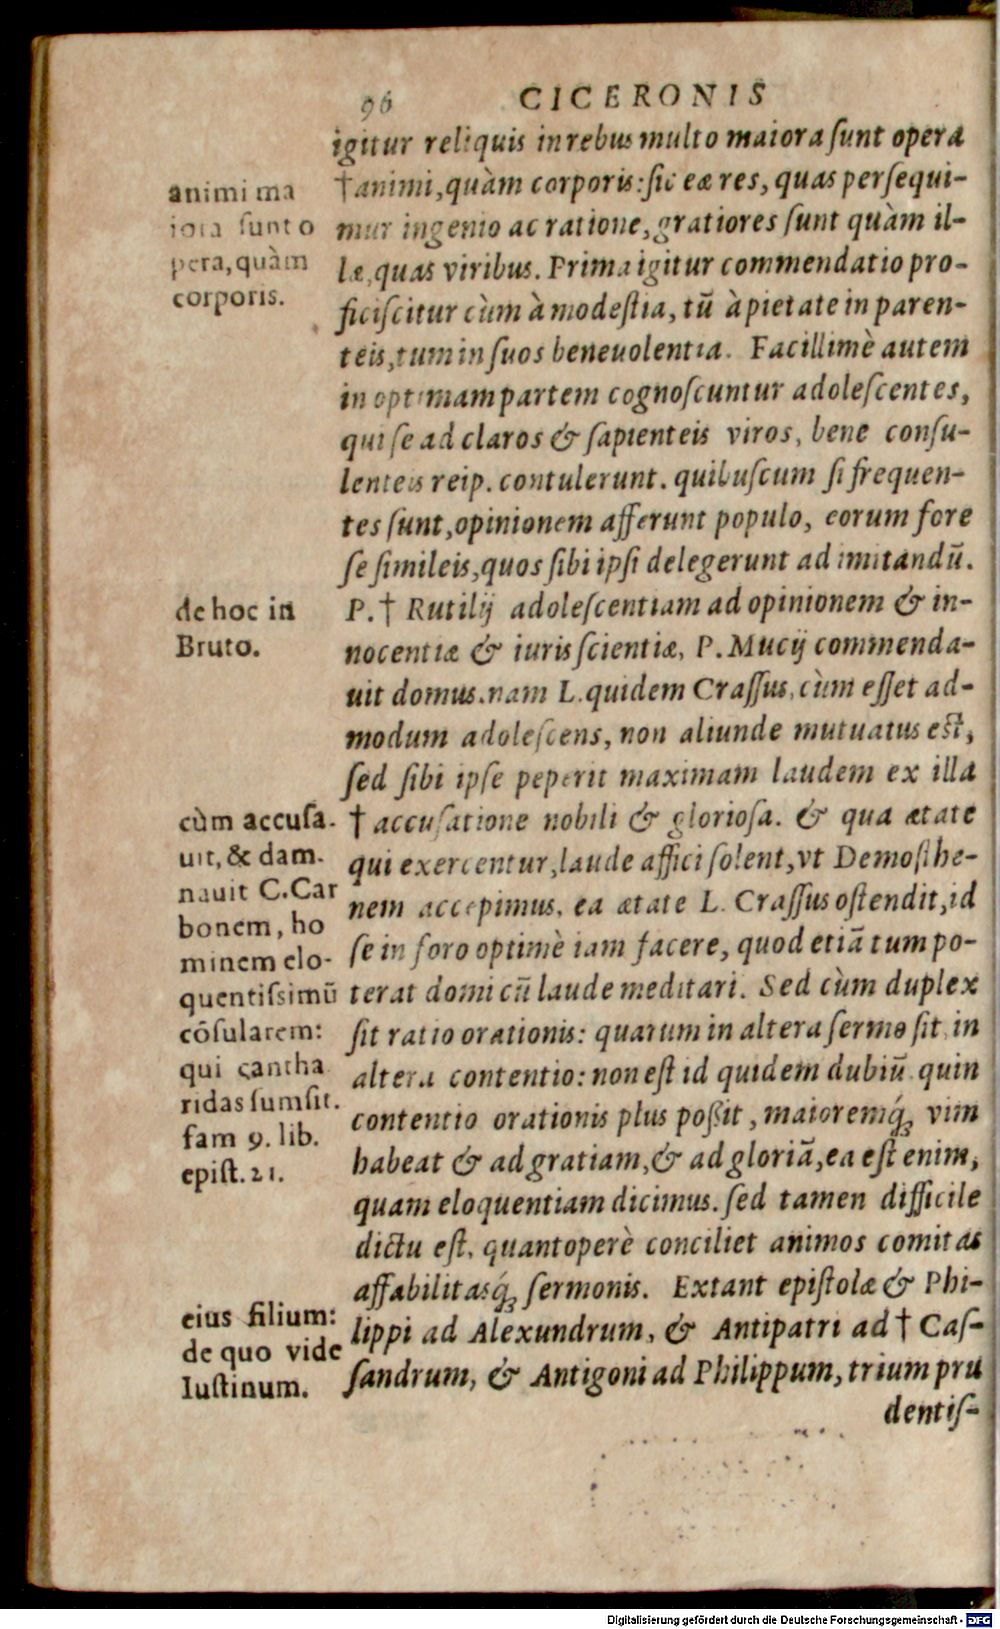 96 CICERONIS
igitur reliquis in rebus multo maiora sunt opera
†animi, quàm corporis: sic eæ res, quas persequi-
mur ingenio ac ratione, gratiores sunt quàm il-
læ, quas viribus. Prima igitur commendatio pro-
ficiscitur cùm à modestia, tū à pietate in paren-
teis, tum in suos beneuolentia. Facillimè autem
in optimam partem cognoscuntur adolescentes,
qui se ad claros & sapienteis viros, bene consu-
lenteis reip. contulerunt. quibuscum si frequen-
tes sunt, opinionem afferunt populo, eorum fore
se simileis, quos sibi ipsi delegerunt ad imitandū.
P.† Rutilij adolescentiam ad opinionem & in-
nocentiæ & iuris scientiæ, P. Mucij commenda-
uit domus. nam L. quidem Crassus, cùm esset ad-
modum adolescens, non aliunde mutuatus est,
sed sibi ipse peperit maximam laudem ex illa
† accusatione nobili & gloriosa. & qua ætate
qui exercentur, laude affici solent, vt Demosthe-
nem accepimus, ea ætate L. Crassus ostendit, id
se in foro optimè iam facere, quod etiā tum po-
terat domi cū laude meditari. Sed cùm duplex
sit ratio orationis: quarum in altera sermo sit, in
altera contentio: non est id quidem dubiū quin
contentio orationis plus poßit, maioremq́; vim
habeat & ad gratiam, & ad gloriā, ea est enim,
quam eloquentiam dicimus. sed tamen difficile
dictu est, quantoperè conciliet animos comitas
affabilitasq́; sermonis. Extant epistolæ & Phi-
lippi ad Alexundrum, & Antipatri ad † Cas-
sandrum, & Antigoni ad Philippum, trium pru
dentis-
animi ma
iora sunt o
pera, quàm
corporis.
de hoc in
Bruto.
cùm accusa-
uit, & dam-
nauit C. Car
bonem, ho
minem elo-
quentissimū
cōsularem:
qui cantha
ridas sumsit.
fam 9. lib.
epist. 21.
eius filium:
de quo vide
Iustinum.
Digitalisierung gefördert durch die Deutsche Forschungsgemeinschaft - DFG